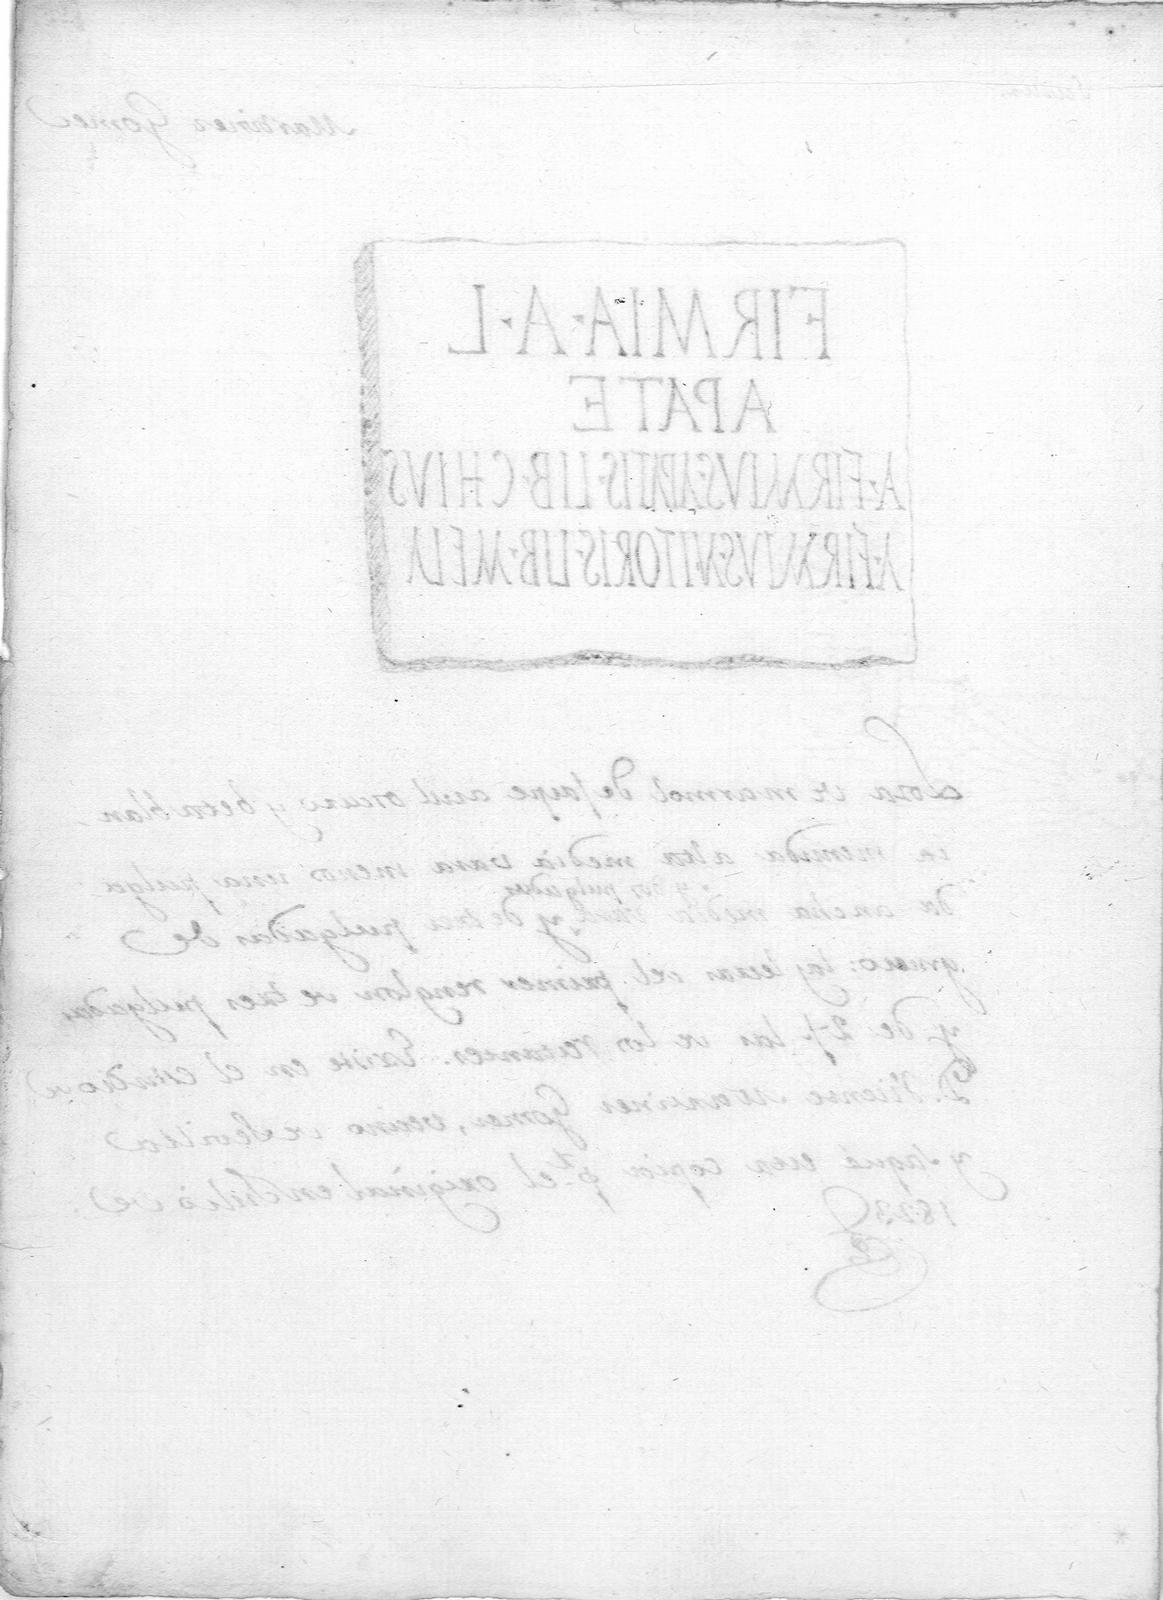 Martinez Gomez
FIRMIA·A·L
APATE
A·FIRMIVS·APATIS·LIB·CHIVS
A·FIRMIVS·NITORIS·LIB·MELA
Losa de marmol de jaspe azul oscuro y beta blan
ca menuda alta media vara menos una pulga
y dos pulgadas
da ancha media vara y de tres pulgadas de
grueso: las letras del primer renglon de tres pulgadas
y de 2 las de los restantes. Existe en el estudio de
D. Vicente Martinez Gomez, vecino de Sevilla
y saqué esta copia pr. el original en Julio de
1823